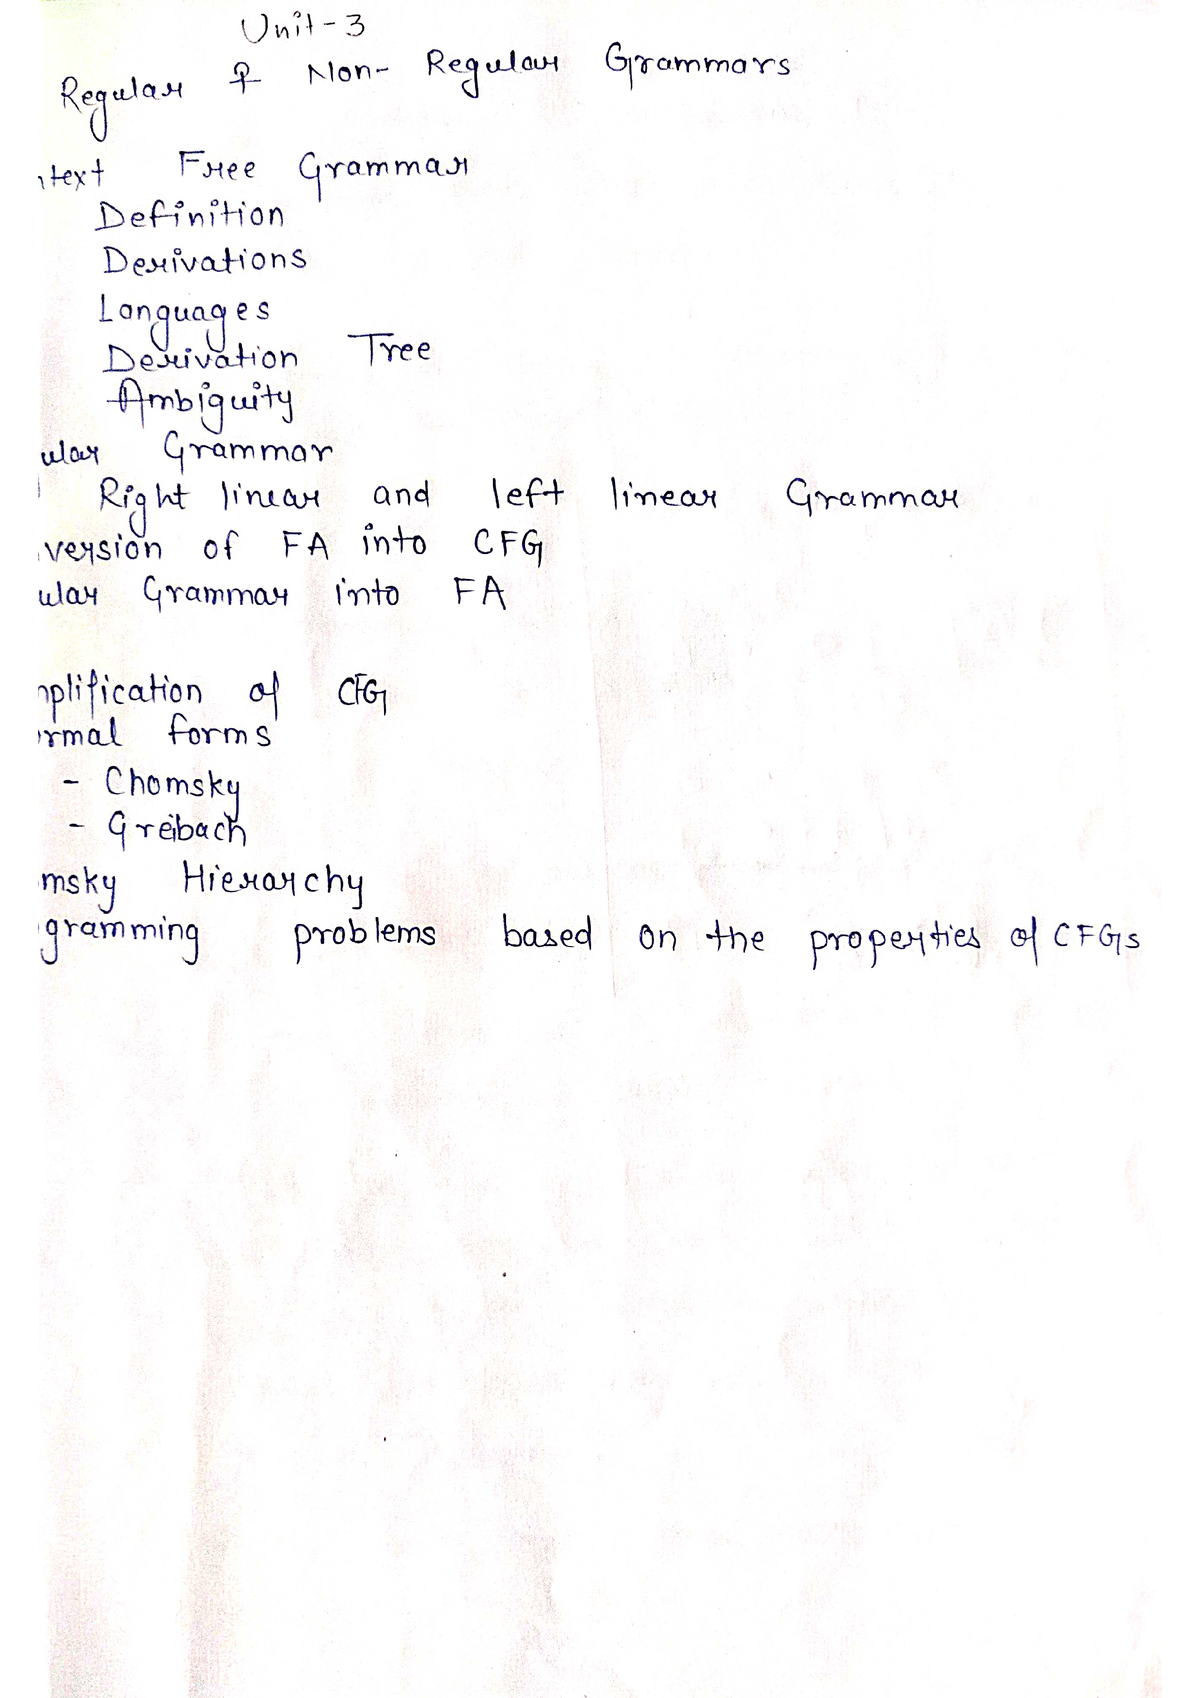 Unit-3
Regular & Non- Regular Grammars
text Free Grammar
Definition
Derivations
Languages
Derivation Tree
Ambiguity
ular Grammar
Right linear and left linear Grammar
version of FA into CFG
ular Grammar into FA
plification of CFG
rmal forms
- Chomsky
- Greibach
msky Hierarchy
gramming problems based on the properties of CFGs